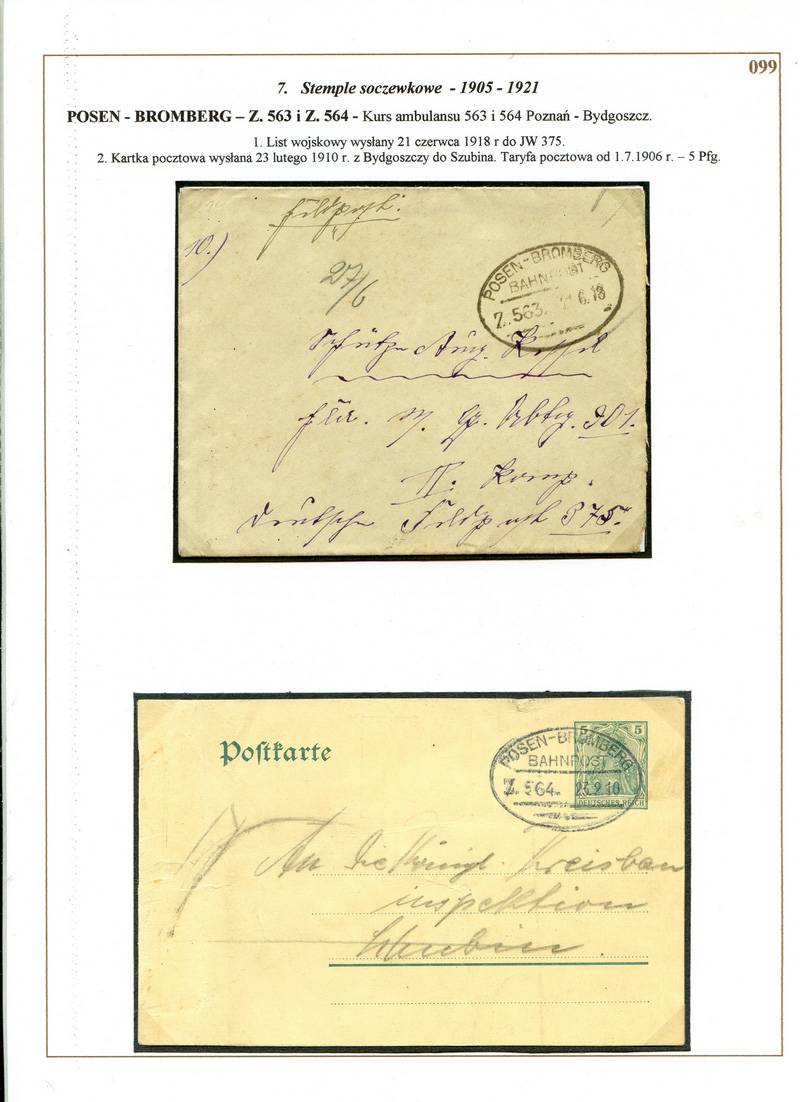 099
7. Stemple soczewkowe - 1905 - 1921
POSEN - BROMBERG – Z. 563 i Z. 564 - Kurs ambulansu 563 i 564 Poznań - Bydgoszcz.
1. List wojskowy wysłany 21 czerwca 1918 r do JW 375.
2. Kartka pocztowa wysłana 23 lutego 1910 r. z Bydgoszczy do Szubina. Taryfa pocztowa od 1.7.1906 r. – 5 Pfg.
Feldpost.
10.)
27/6
POSEN-BROMBERG
BAHNPOST
Z. 563. 21.6.18
Schütze Aug.
301.
II. Komp.
Deutsche Feldpost 375."
Postkarte
5 5
DEUTSCHES REICH
POSEN-BROMBERG
BAHNPOST
Z. 564. 23.2.10
An die Königl. Kreisbau
inspektion
Schubin.